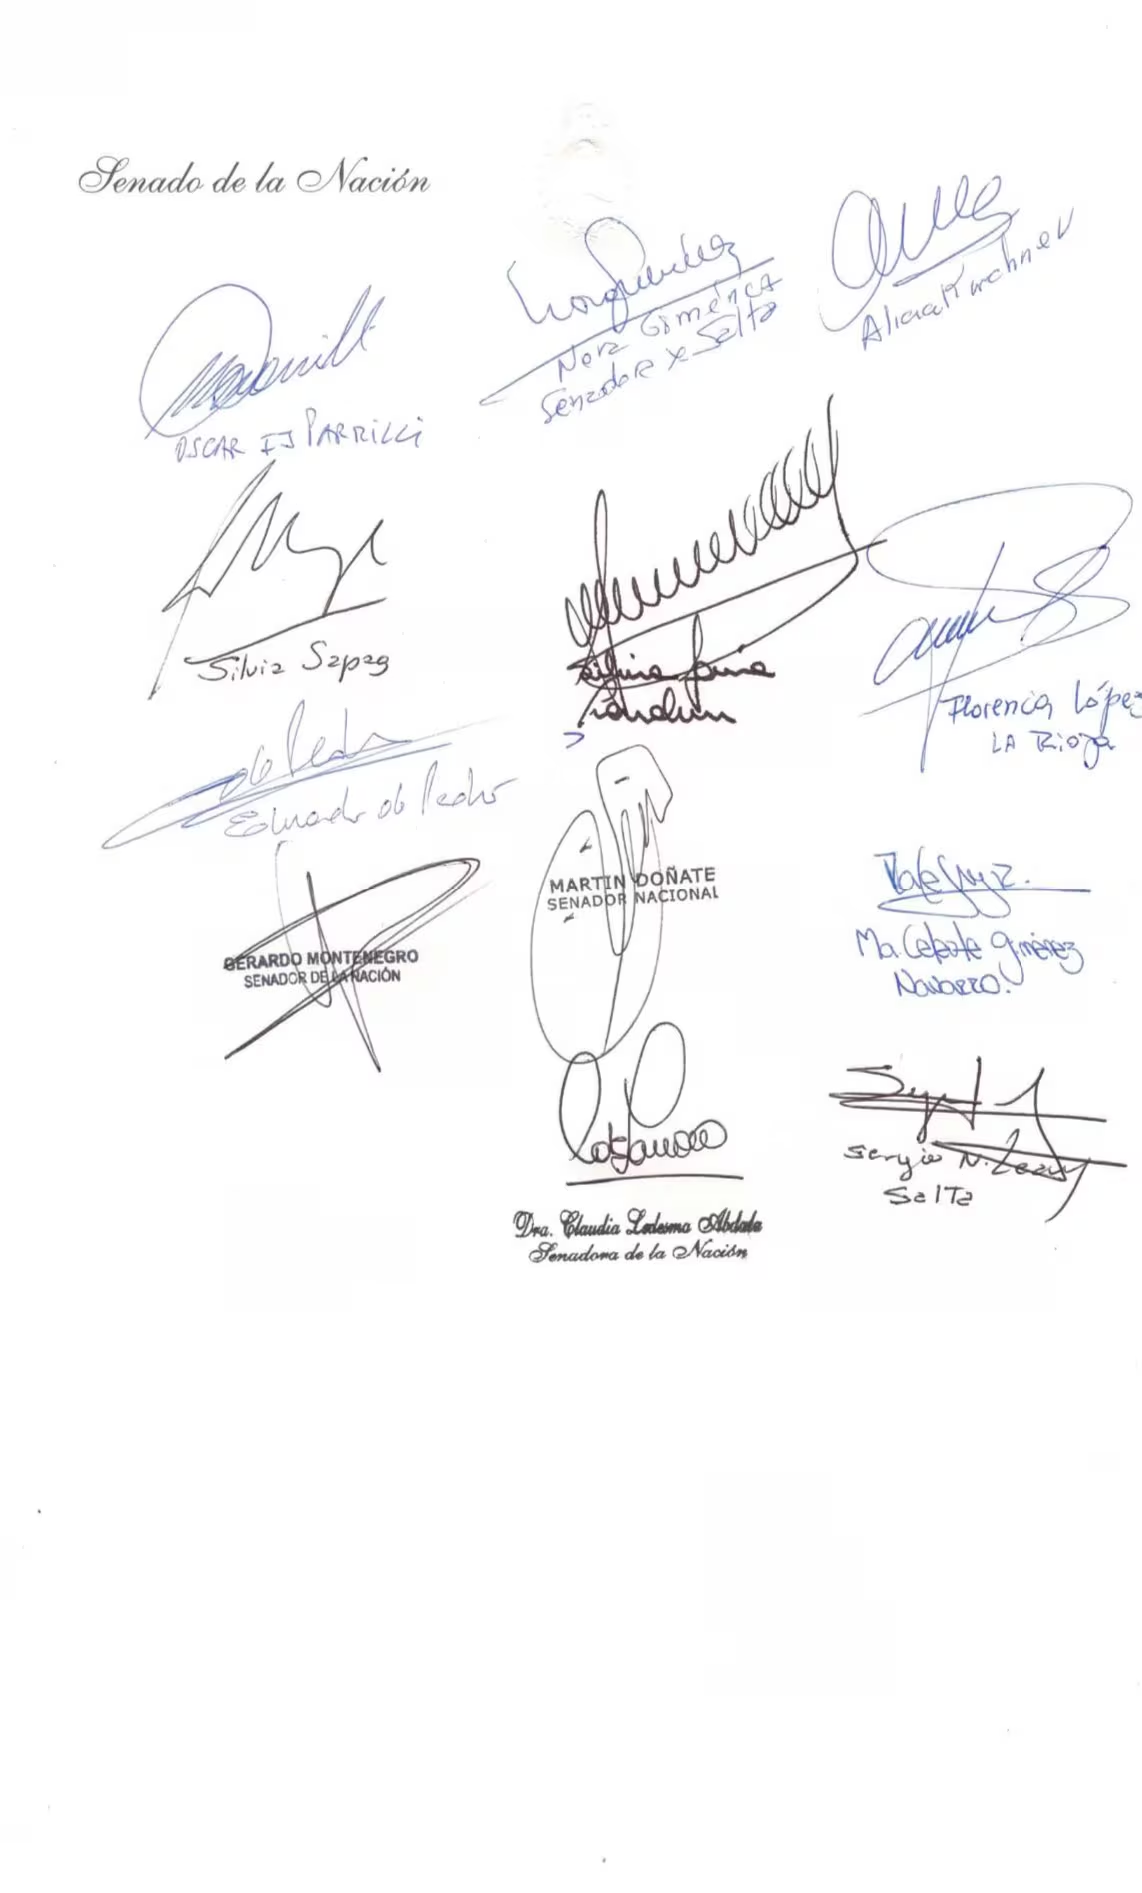 Senado de la Nación
Nora Giménez
Senadora x Salta
Alicia Kirchner
OSCAR IJ PARRILLI
Silvia Sapag
Florencia López
LA RIOJA
Eduardo de Pedro
MARTIN DOÑATE
SENADOR NACIONAL
Ma. Celeste Giménez
Navarro.
GERARDO MONTENEGRO
SENADOR DE LA NACIÓN
Sergio N. Leavy
Salta
Dra. Claudia Ledesma Abdala
Senadora de la Nación